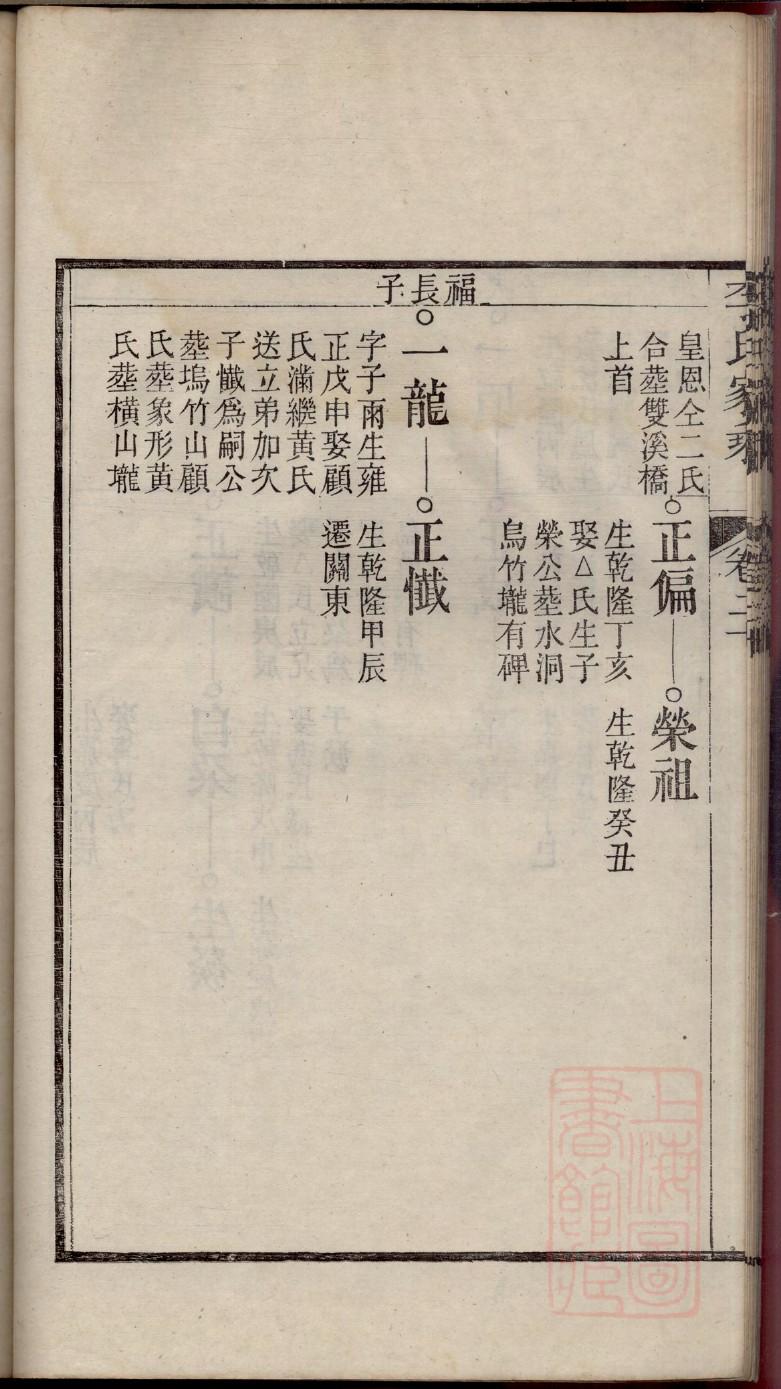 卷二
皇恩仝二氏
合塟雙溪橋
上首
正偏
生乾隆丁亥
娶△氏生子
榮公塟水洞
烏竹壠有碑
榮祖
生乾隆癸丑
福長子
一龍
字子雨生雍
正戊申娶顧
氏滿繼黄氏
送立弟加次
子懺爲嗣公
塟塢竹山顧
氏塟象形黄
氏塟横山壠
正懺
生乾隆甲辰
遷關東
上海圖
書館藏